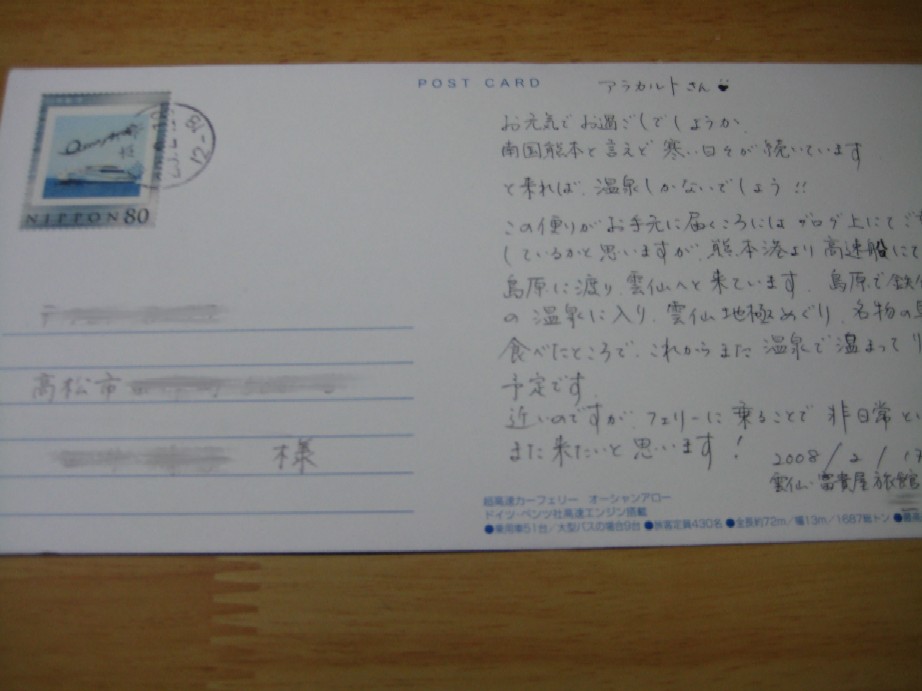 POST CARD
アラカルトさん
NIPPON 80
12-18
お元気でお過ごしでしょうか、
南国熊本と言えど寒い日々が続いています
と来れば、温泉しかないでしょう!!
この便りがお手元に届くころにはブログ上にてご
しているかと思いますが、熊本港より高速船にて
島原に渡り、雲仙へと来ています。島原で
の温泉に入り、雲仙地極めぐり、名物の
食べたところで、これからまた温泉で温まって
予定です
近いのですが、フェリーに乗ることで非日常と
また来たいと思います!
2008/2/17
雲仙・富貴屋旅館
高松市
様
超高速カーフェリー オーシャンアロー
ドイツ・ベンツ社高速エンジン搭載
●乗用車51台/大型バスの場合9台 ●旅客定員430名 ●全長約72m/幅13m/1687総トン ●最高